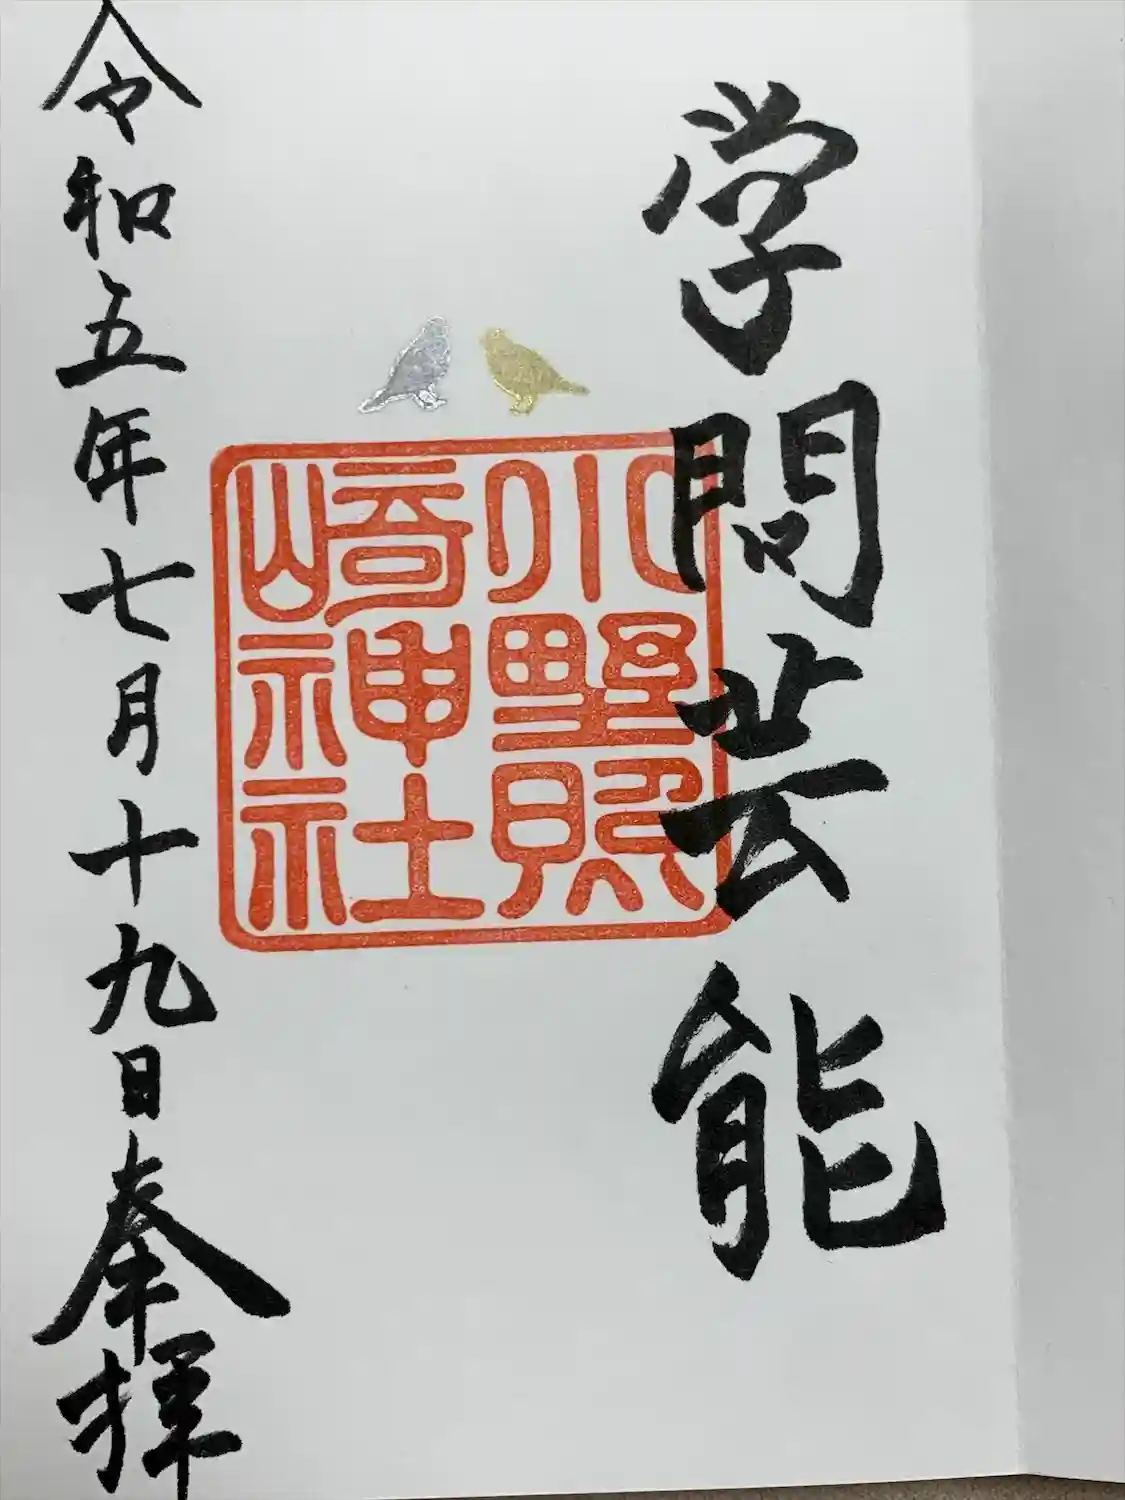 学問芸能
小野照
崎神社
令和五年七月十九日奉拝